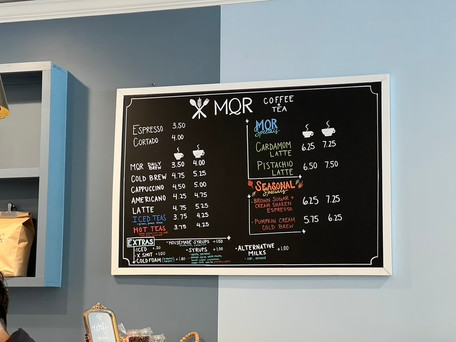 MQR COFFEE + TEA
ESPRESSO 3.50
CORTADO 4.00
MQR DAILY BREW 3.50 4.00
COLD BREW 4.75 5.25
CAPPUCCINO 4.50 5.00
AMERICANO 4.25 4.75
LATTE 4.75 5.25
ICED TEAS 3.75 4.25
HOT TEAS 3.75 4.25
EXTRAS
ICED +.50
X SHOT +1.00
COLD FOAM
HOUSEMADE SYRUPS +1.50
SYRUPS +1.00
ALTERNATIVE MILKS +1.00
MQR Specials
CARDAMOM LATTE 6.25 7.25
PISTACHIO LATTE 6.50 7.50
SEASONAL Specials
BROWN SUGAR + CREAM SHAKEN ESPRESSO 6.25 7.25
PUMPKIN CREAM COLD BREW 5.75 6.25